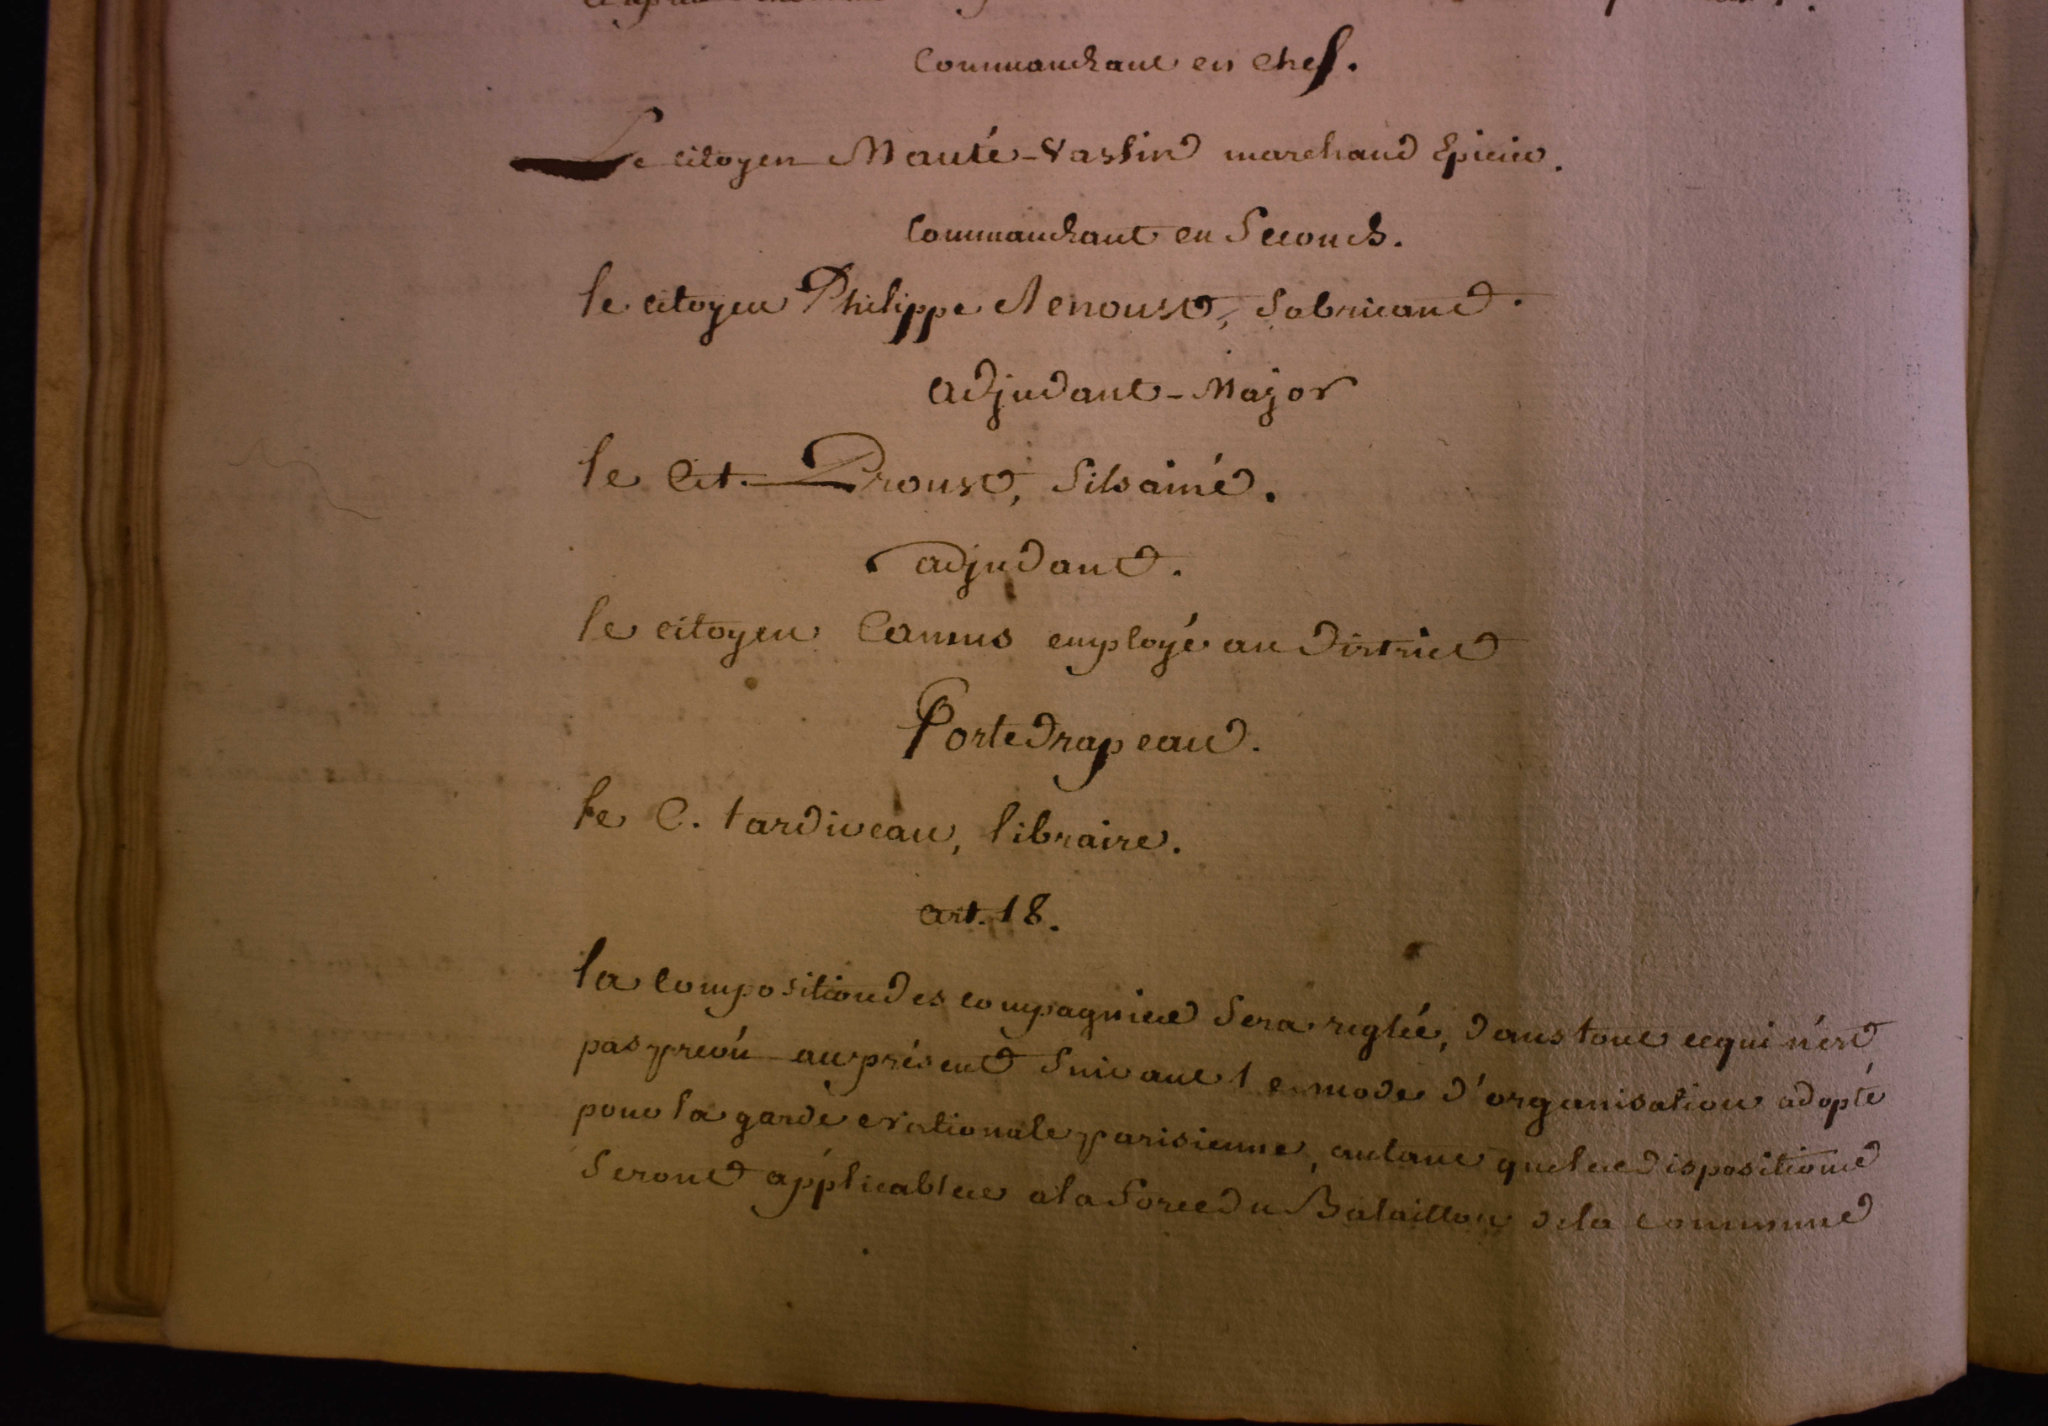 Commandant en chef.
Le citoyen Mauté-Vaslin marchand Epicier.
Commandant en Second.
le citoyen Philippe Renoust, fabricant.
adjudant-Major
le Cit. Proust, fils ainé.
adjudant.
le citoyen Camus employé au District
Porte Drapeau.
le C. tardiveau, libraire.
art. 18.
la composition des compagnies sera reglée, dans tout ce qui n'est
pas prevû au présent suivant le mode d'organisation adopté
pour la garde nationale parisienne, autant que les dispositions
seront applicables a la force du Bataillon de la commune